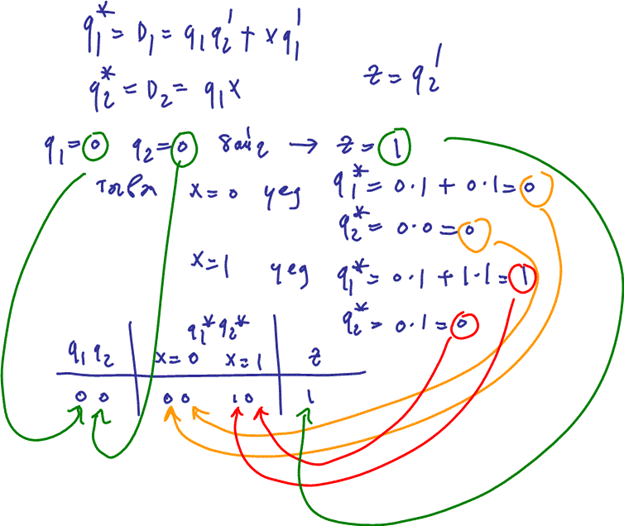 q₁* = D₁ = q₁q₂' + xq₁'
q₂* = D₂ = q₁x
z = q₂'
q₁ = 0 q₂ = 0 → z = 1
x = 0 үед q₁* = 0·1 + 0·1 = 0
q₂* = 0·0 = 0
x = 1 үед q₁* = 0·1 + 1·1 = 1
q₂* = 0·1 = 0
q₁* q₂*
q₁ q₂ x = 0 x = 1 z
0 0 0 0 1 0 1